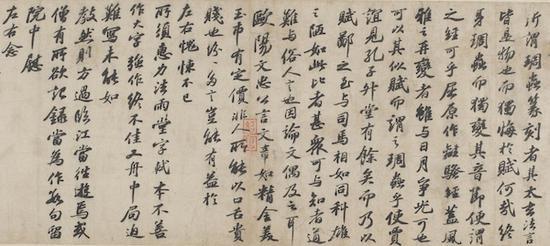 所謂琱蟲篆刻者其太玄法言
皆是物也而獨悔於賦何哉終
身琱蟲而獨變其音節便謂
之經可乎屈原作離騷經蓋風
雅之再變者雖與日月爭光可也
可以其似賦而謂之琱蟲乎使賈
誼見孔子升堂有餘矣而乃以
賦鄙之至與司馬相如同科雄
之陋如此比者甚衆可與知者道
難與俗人言也因論文偶及之耳
歐陽文忠公言文章如精金美
玉市有定價非人所能以口舌貴
賤也紛紛多言豈能有益於
左右愧悚不已
所須惠力法雨堂字軾本不善
作大字強作終不佳又舟中局迫
難寫未能如
教然則方過臨江當往遊焉或
僧有所欲記錄當為作數句留
院中慰
左右念